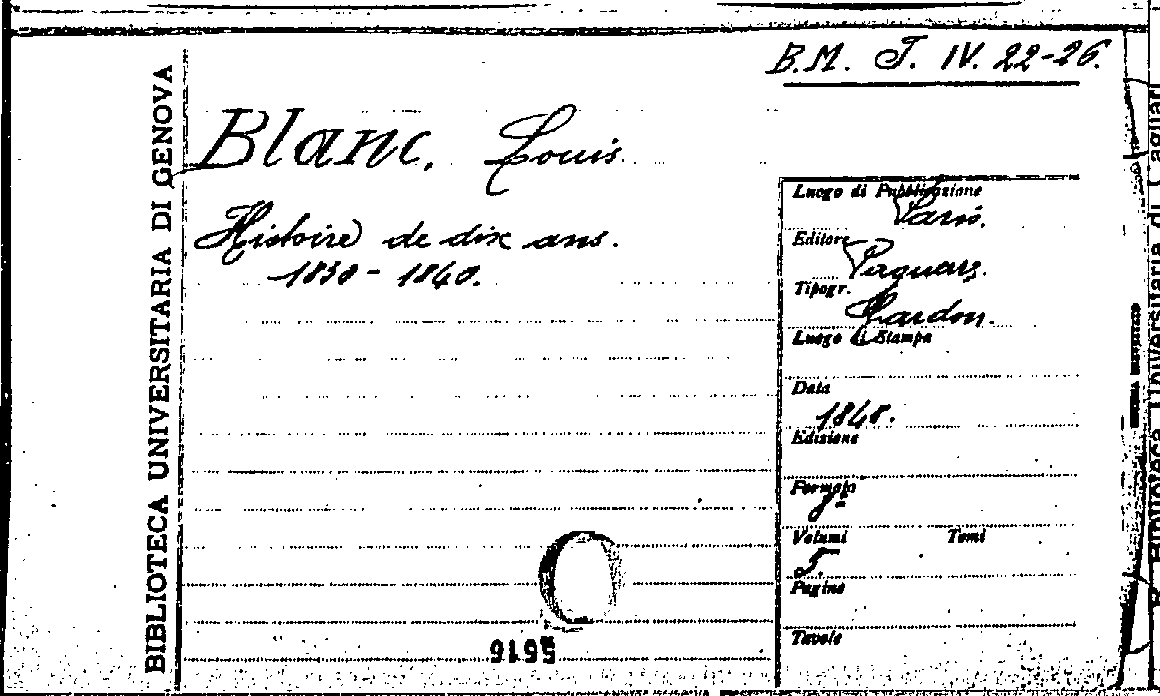 B.M. J. IV. 22-26.
BIBLIOTECA UNIVERSITARIA DI GENOVA
Blanc, Louis
Histoire de dix ans.
1830 - 1840.
Luogo di Pubblicazione
Paris.
Editore
Tipogr.
Luogo di Stampa
Data
1848.
Edizione
Formato
8º
Volumi Tomi
5.
Pagine
Tavole
Biblioteca Universitaria di Cagliari